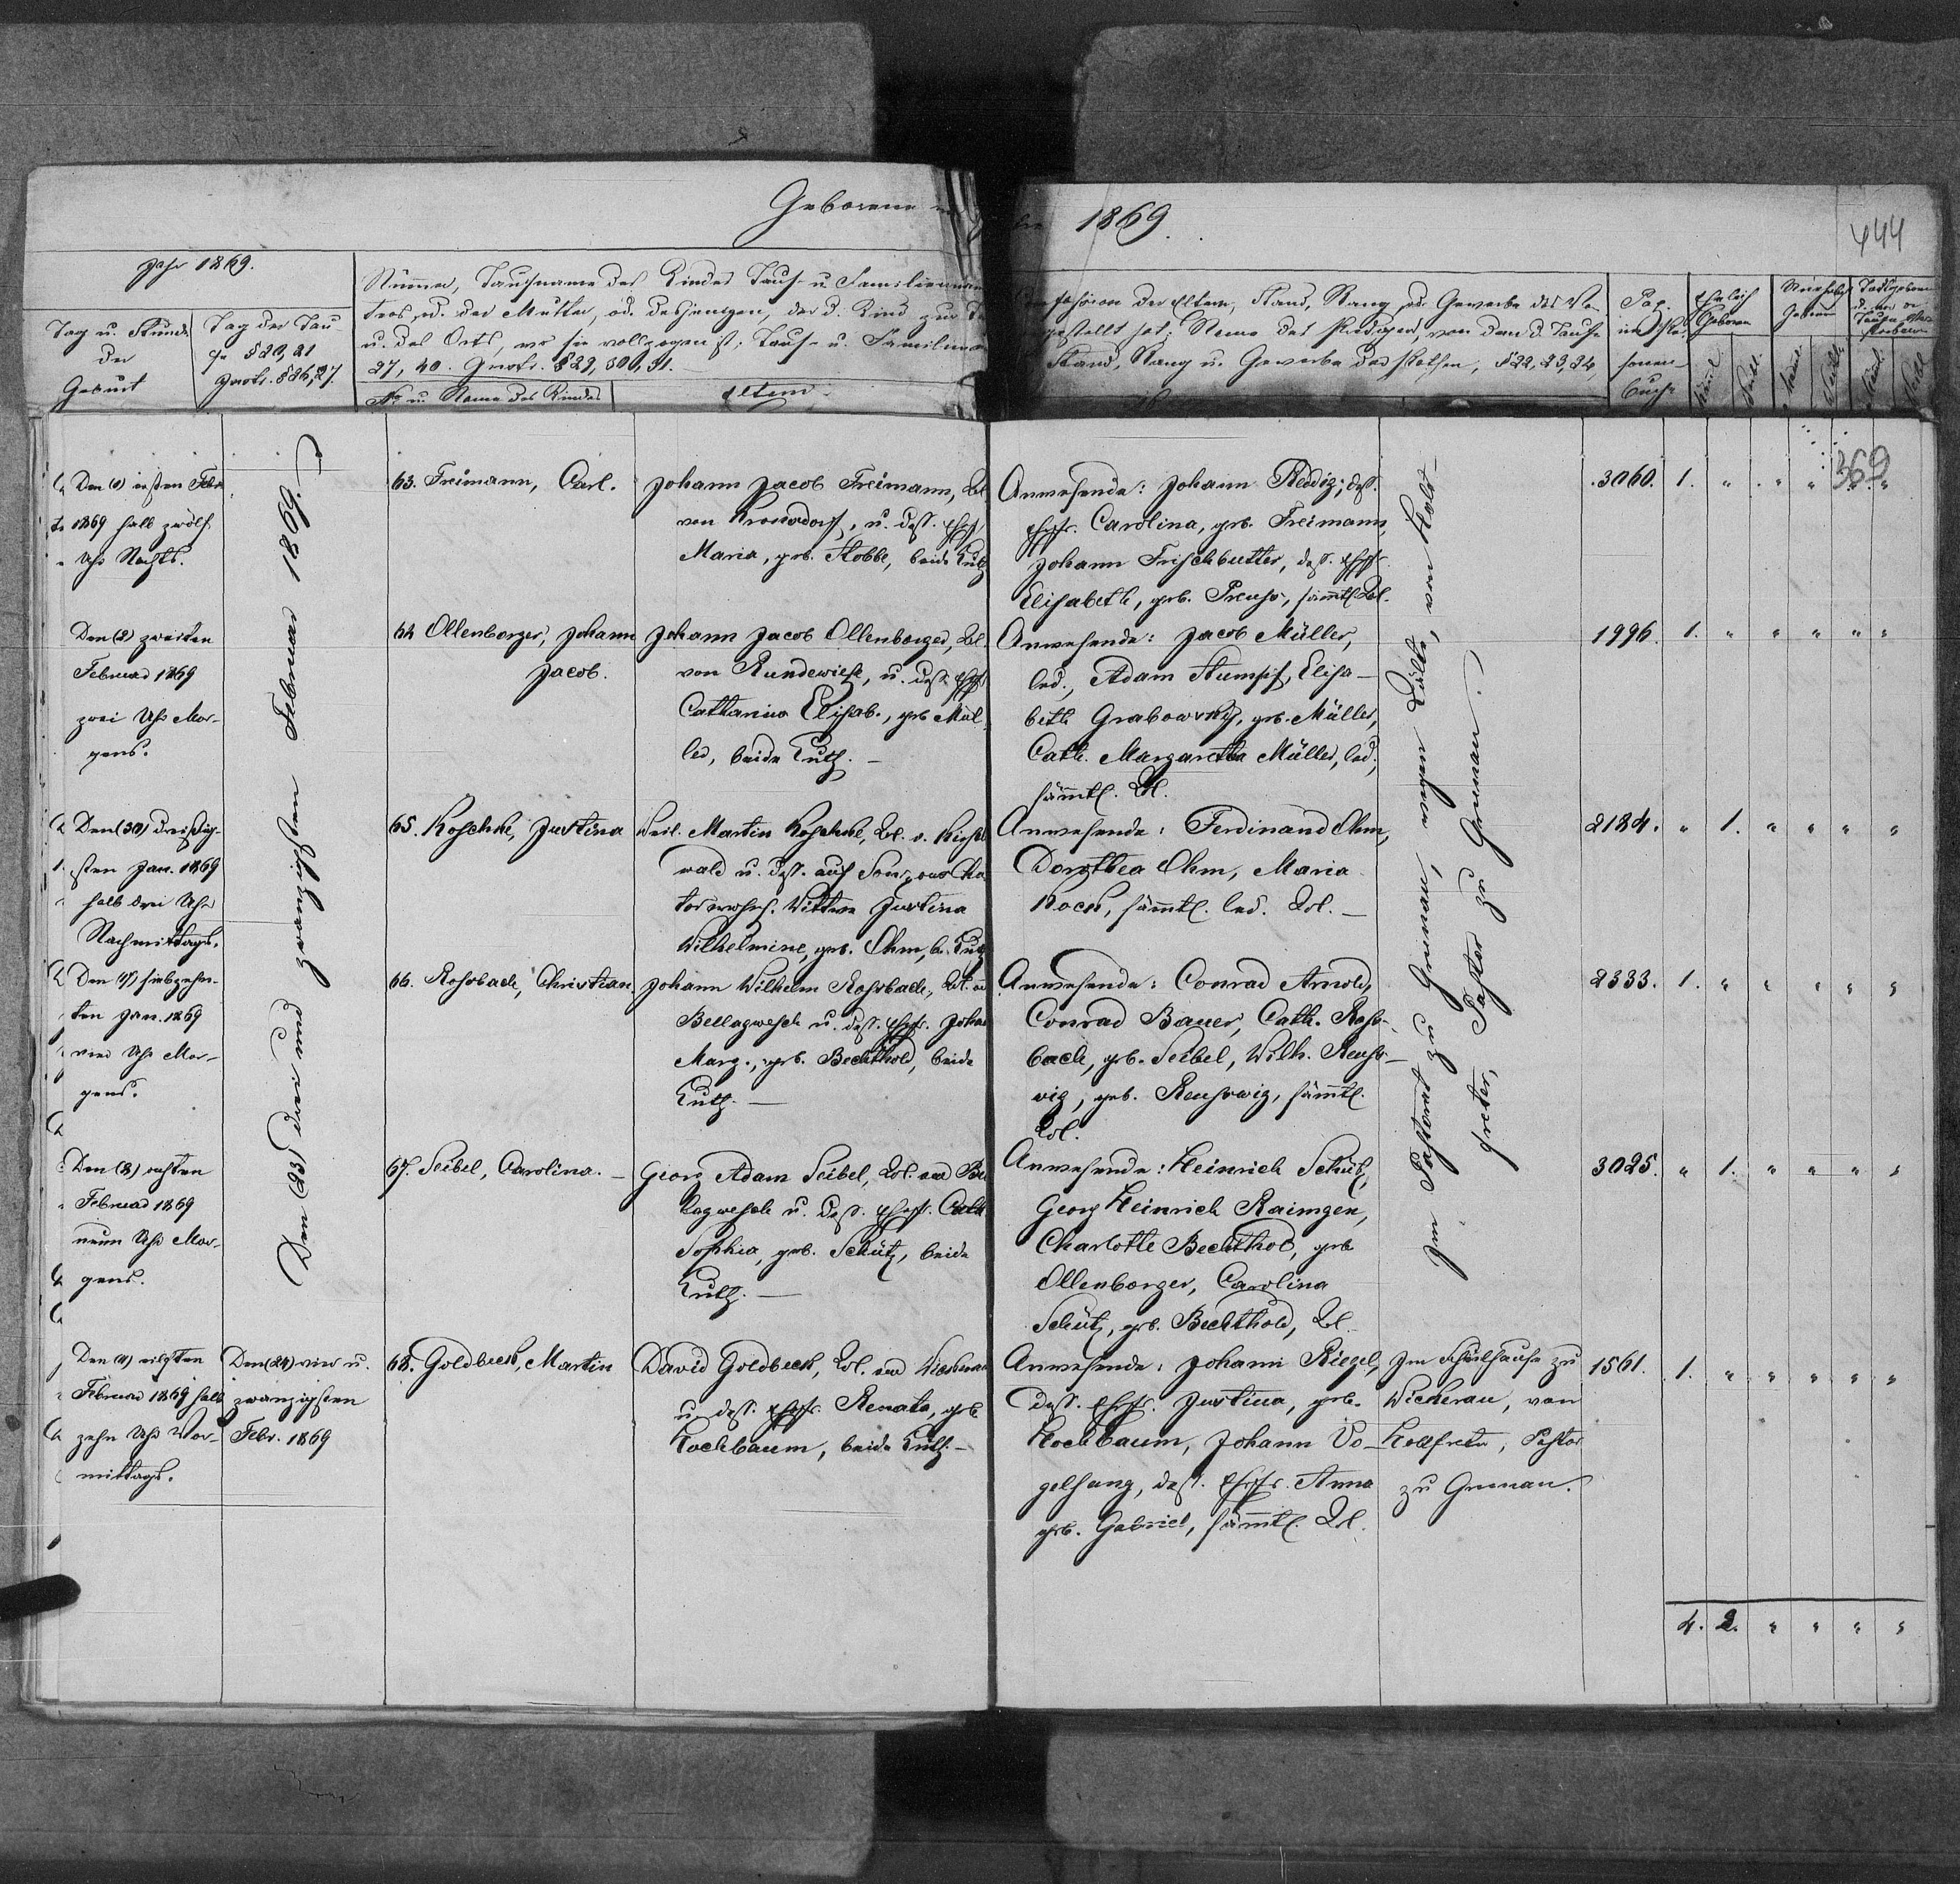 Geborene
1869.
444
Jahr 1869.
Tag u. Stunde
der
Geburt
Tag der Tau-
fe § 20, 21
Instr. § 26, 27.
Nummer, Taufname des Kindes Tauf- u. Familienname
ters od. der Mutter, od. desjenigen, der d. Kind zur
u. des Orts, wo sie vollzogen ist; Tauf- u. Familienna
27, 40. Instr. § 29, 30, 31.
№ u. Name des Kindes
Eltern
Confession der Eltern, Stand, Rang od. Gewerbe des Va-
gestellt hat; Name des Predigers, von dem d. Taufe
Stand, Rang u. Gewerbe der Pathen, § 22, 23, 24,
Pag.
im
sonen-
buche
Ehelich
Geboren
Männl.
Weibl.
369
Den (1) ersten Febr.
1869 halb zwölf
Uhr Nachts.
Den (23) drei und zwanzigsten Februar 1869.
63. Freimann, Carl.
Johann Jacob Freimann, Col.
von Kronsdorf, u. dess. Ehefr.
Maria, geb. Stobbe, beide Luth.
Anwesende: Johann Reddig; dess.
Ehefr. Carolina, geb. Freimann,
Johann Frischbutter, dess. Ehefr.
Elisabeth, geb. Preuss, sämmtl. Col.
Im Pastorat zu Grunau, wegen Kälte, von Holt-
freter, Pastor zu Grunau.
3060. 1. " " " " "
Den (2) zweiten
Februar 1869
zwei Uhr Mor-
gens.
64 Ollenborger, Johann
Jacob.
Johann Jacob Ollenborger, Col.
von Rundewiese, u. dess. Ehefr.
Catharina Elisab., geb. Mül-
ler, beide Luth. –
Anwesende: Jacob Müller,
led., Adam Stumpf, Elisa-
beth Grabowsky, geb. Müller,
Cath. Margaretha Müller, led.,
sämmtl. Col.
1996. 1. " " " " "
Den (30) dreissig-
sten Jan. 1869
halb drei Uhr
Nachmittags.
65. Koschke, Justina
Weil. Martin Koschke, Col. v. Kirsch
wald u. dess. auf
Wittwe Justina
Wilhelmine, geb. Ohm, b. Luth
Anwesende: Ferdinand Ohm,
Dorothea Ohm, Maria
Kock, sämmtl. led. Col. –
2184. " 1. " " " "
Den (17) siebzehn-
ten Jan. 1869
vier Uhr Mor-
gens.
66. Rohrbach, Christian.
Johann Wilhelm Rohrbach, Col. von
Bellagwesch u. dess. Ehefr. Johan
Marg., geb. Bechthold, beide
Luth. –
Anwesende: Conrad Arnold,
Conrad Bauer, Cath. Rohr-
bach, geb. Seibel, Wilh. Reuss-
wig, geb. Reusswig, sämmtl.
Col.
2333. 1. " " " " "
Den (8) achten
Februar 1869
neun Uhr Mor-
gens.
67. Seibel, Carolina. –
Georg Adam Seibel, Col. von Bel
lagwesch u. dess. Ehefr. Cath
Sophia, geb. Schütz, beide
Luth. –
Anwesende: Heinrich Schütz,
Georg Heinrich Raimgen,
Charlotte Bechthod, geb.
Ollenborger, Carolina
Schütz, geb. Bechthold, Col.
3025. " 1. " " " "
Den (11) eilften
Februar 1869 halb
zehn Uhr Vor-
mittags.
Den (24) vier u.
zwanzigsten
Febr. 1869
68. Goldbeck, Martin
David Goldbeck, Col. von Wickerau
u. dess. Ehefr. Renata, geb.
Hochbaum, beide Luth. –
Anwesende: Johann Riegel,
dess. Ehefr. Justina, geb.
Hochbaum, Johann Vo-
gelsang, dess. Ehefr. Anna
geb. Gabriel, sämmtl. Col.
Im Schulhause zu
Wickerau, von
Holtfreter, Pastor
zu Grunau.
1561. 1. " " " " "
4. 2. " " " "